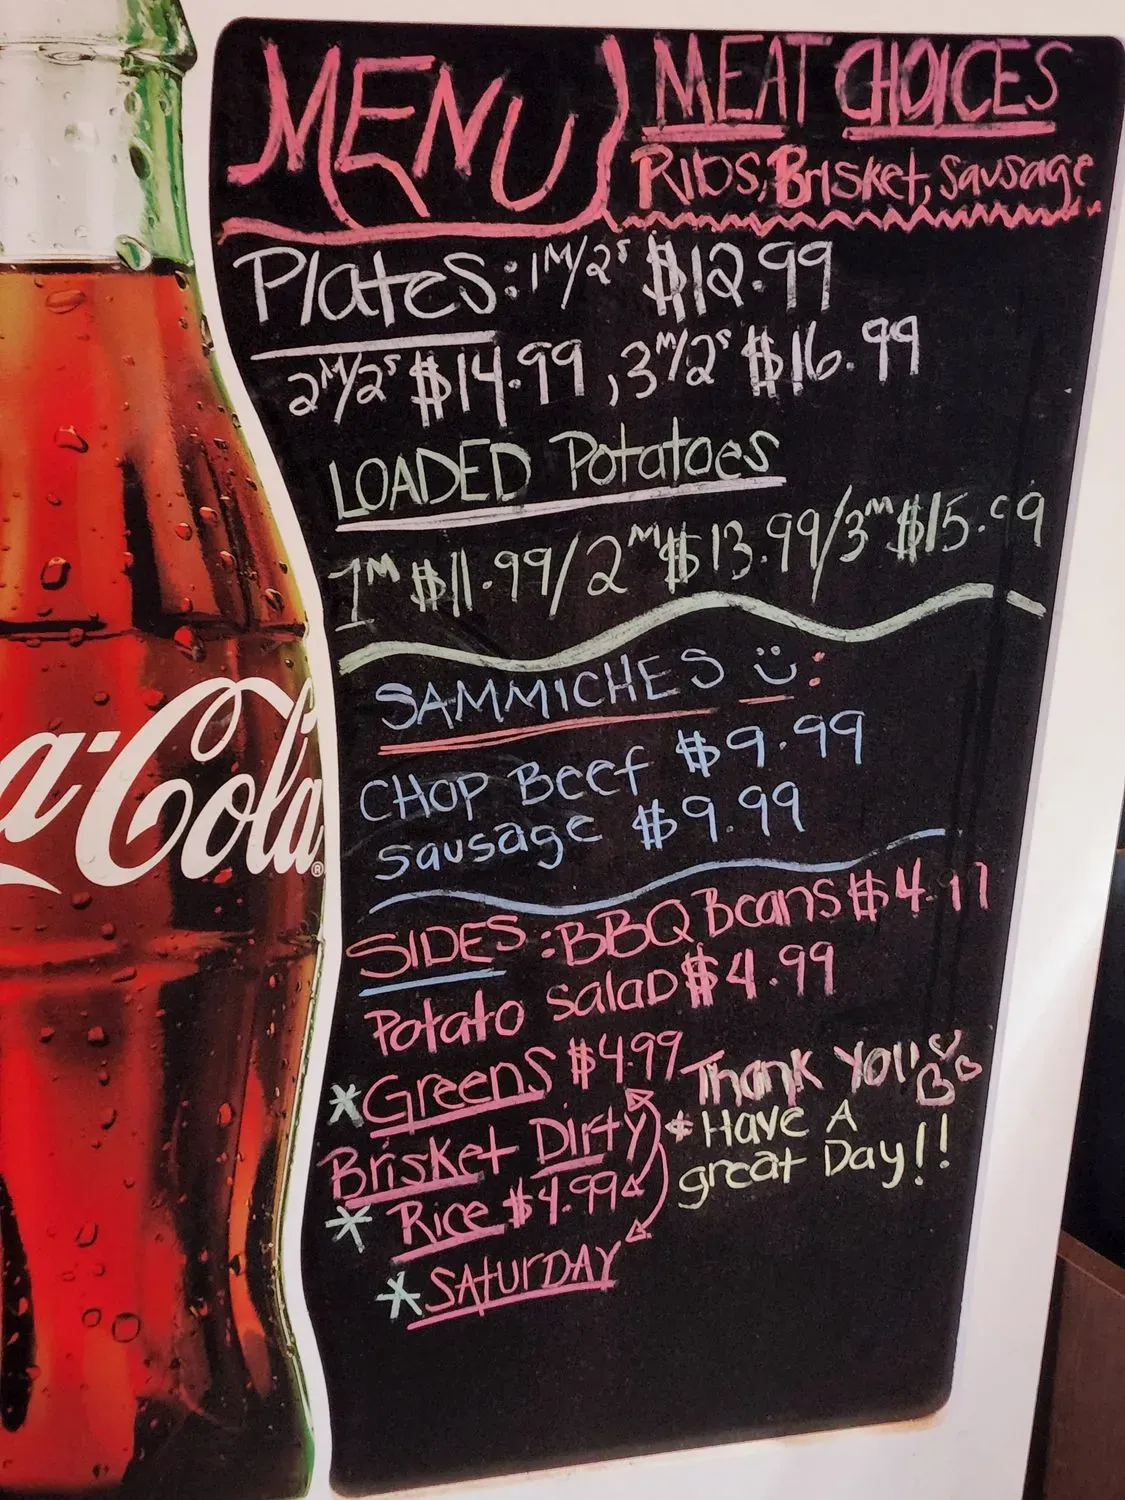 MENU
MEAT CHOICES
Ribs, Brisket, Sausage
Plates: 1M/2s $12.99
2M/2s $14.99, 3M/2s $16.99
LOADED Potatoes
1M $11.99/2M $13.99/3M $15.99
SAMMICHES :
CHOP Beef $9.99
Sausage $9.99
SIDES: BBQ Beans
Potato Salad $4.99
*Greens $4.99
Brisket Dirty
* Rice $4.99
* SATURDAY
Thank You!!
Have A
great Day!!
a-Cola®